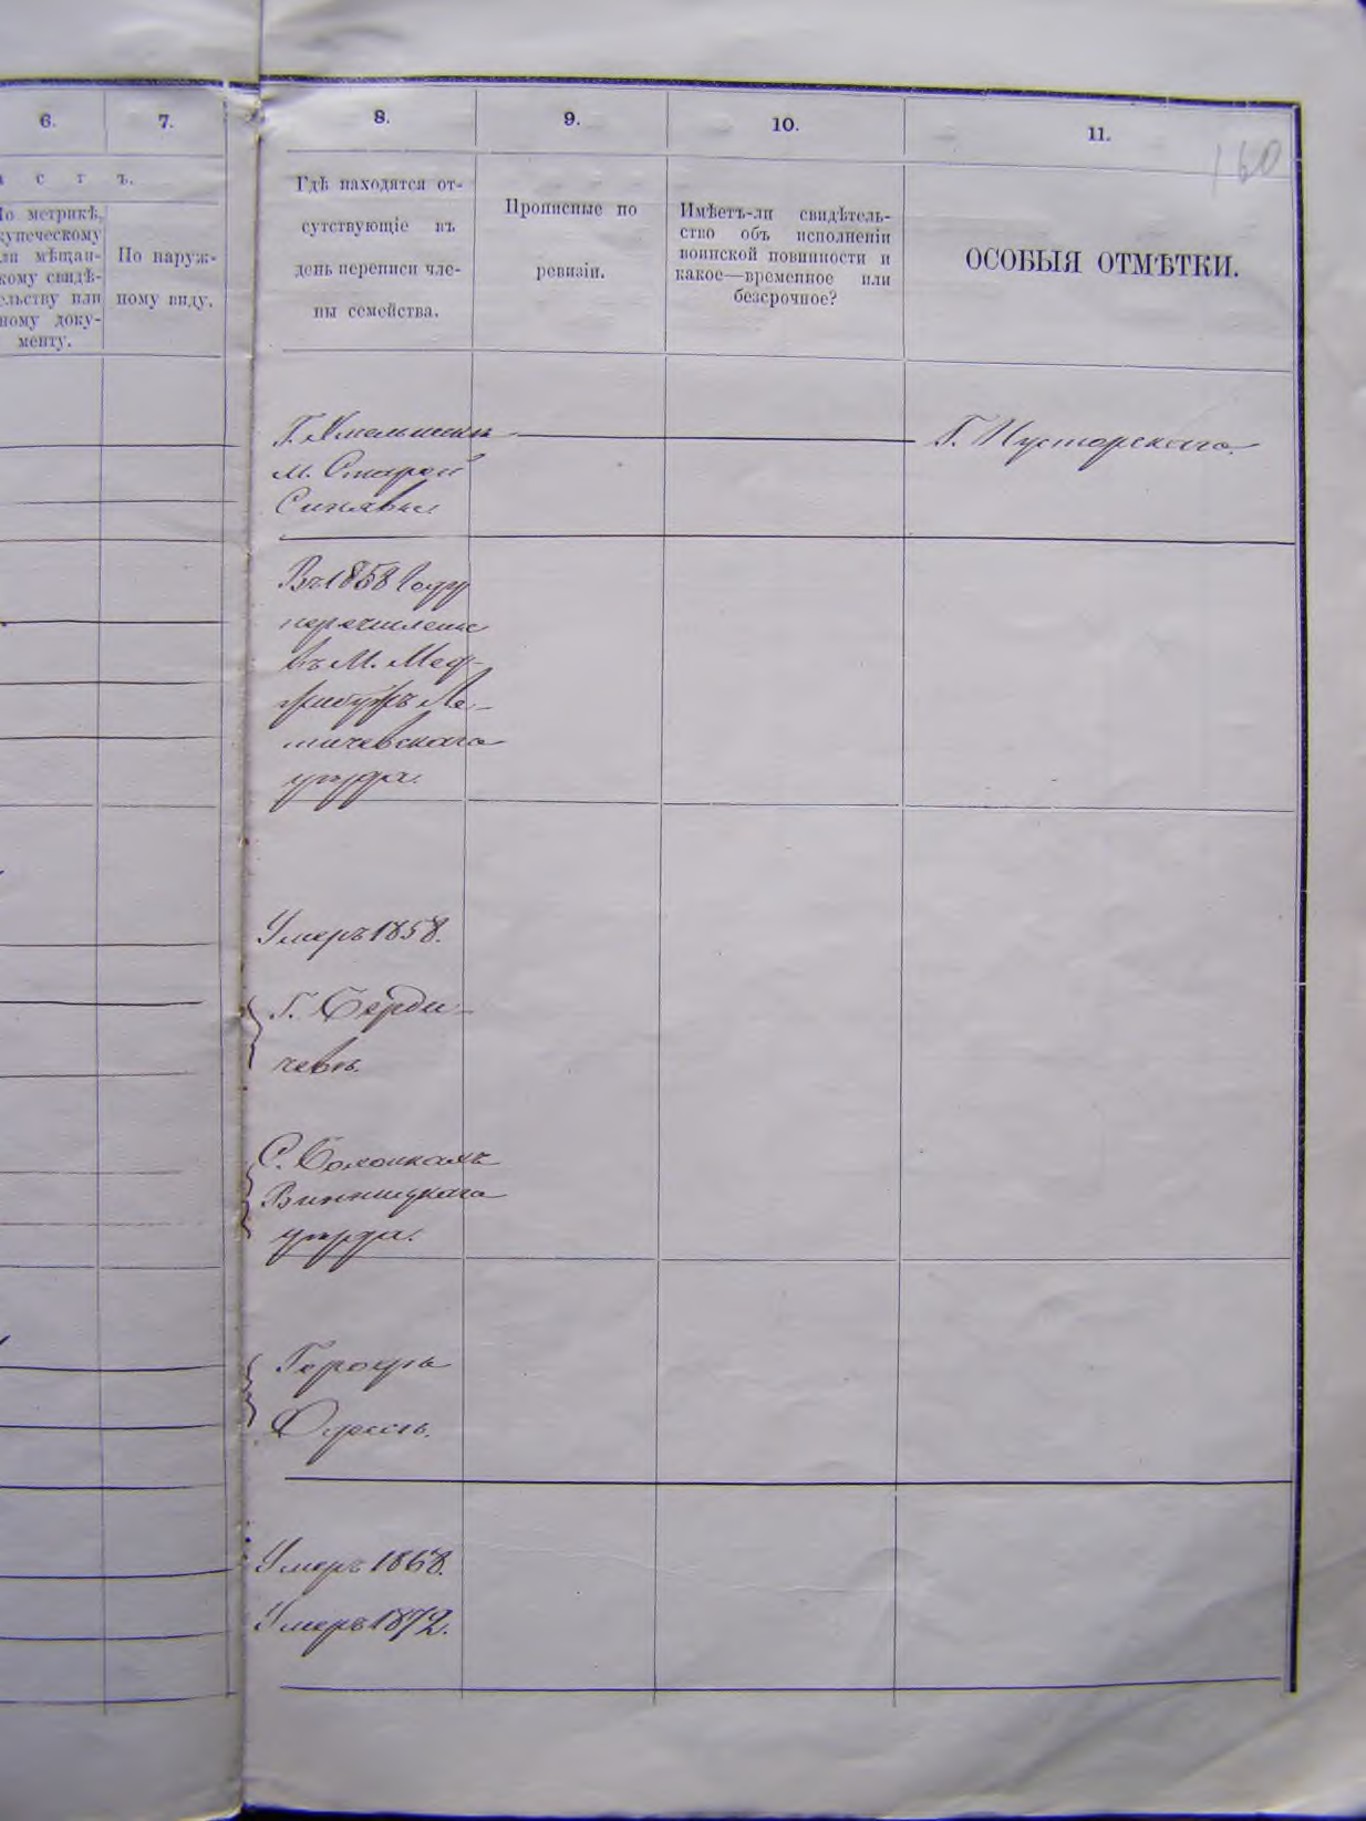 6.
7.
8.
9.
10.
11.
160
с т ъ.
По метрикѣ,
купеческому
или мѣщан-
скому свидѣ-
тельству или
иному доку-
менту.
По наруж-
ному виду.
Гдѣ находятся от-
сутствующіе въ
день переписи чле-
ны семейства.
Прописные по
ревизіи.
Имѣетъ-ли свидѣтель-
ство объ исполненіи
воинской повинности и
какое—временное или
безсрочное?
ОСОБЫЯ ОТМѢТКИ.
Г. Хмельникъ
м. Старой
Синявки
Г.
Въ 1858 году
перечислены
въ М. Мед-
жибужъ Ле-
тичевскаго
уѣзда.
Умеръ 1858.
Г. Берди-
чевъ.
С.
Винницкаго
уѣзда.
Городъ
Одессъ.
Умеръ 1868.
Умеръ 1872.